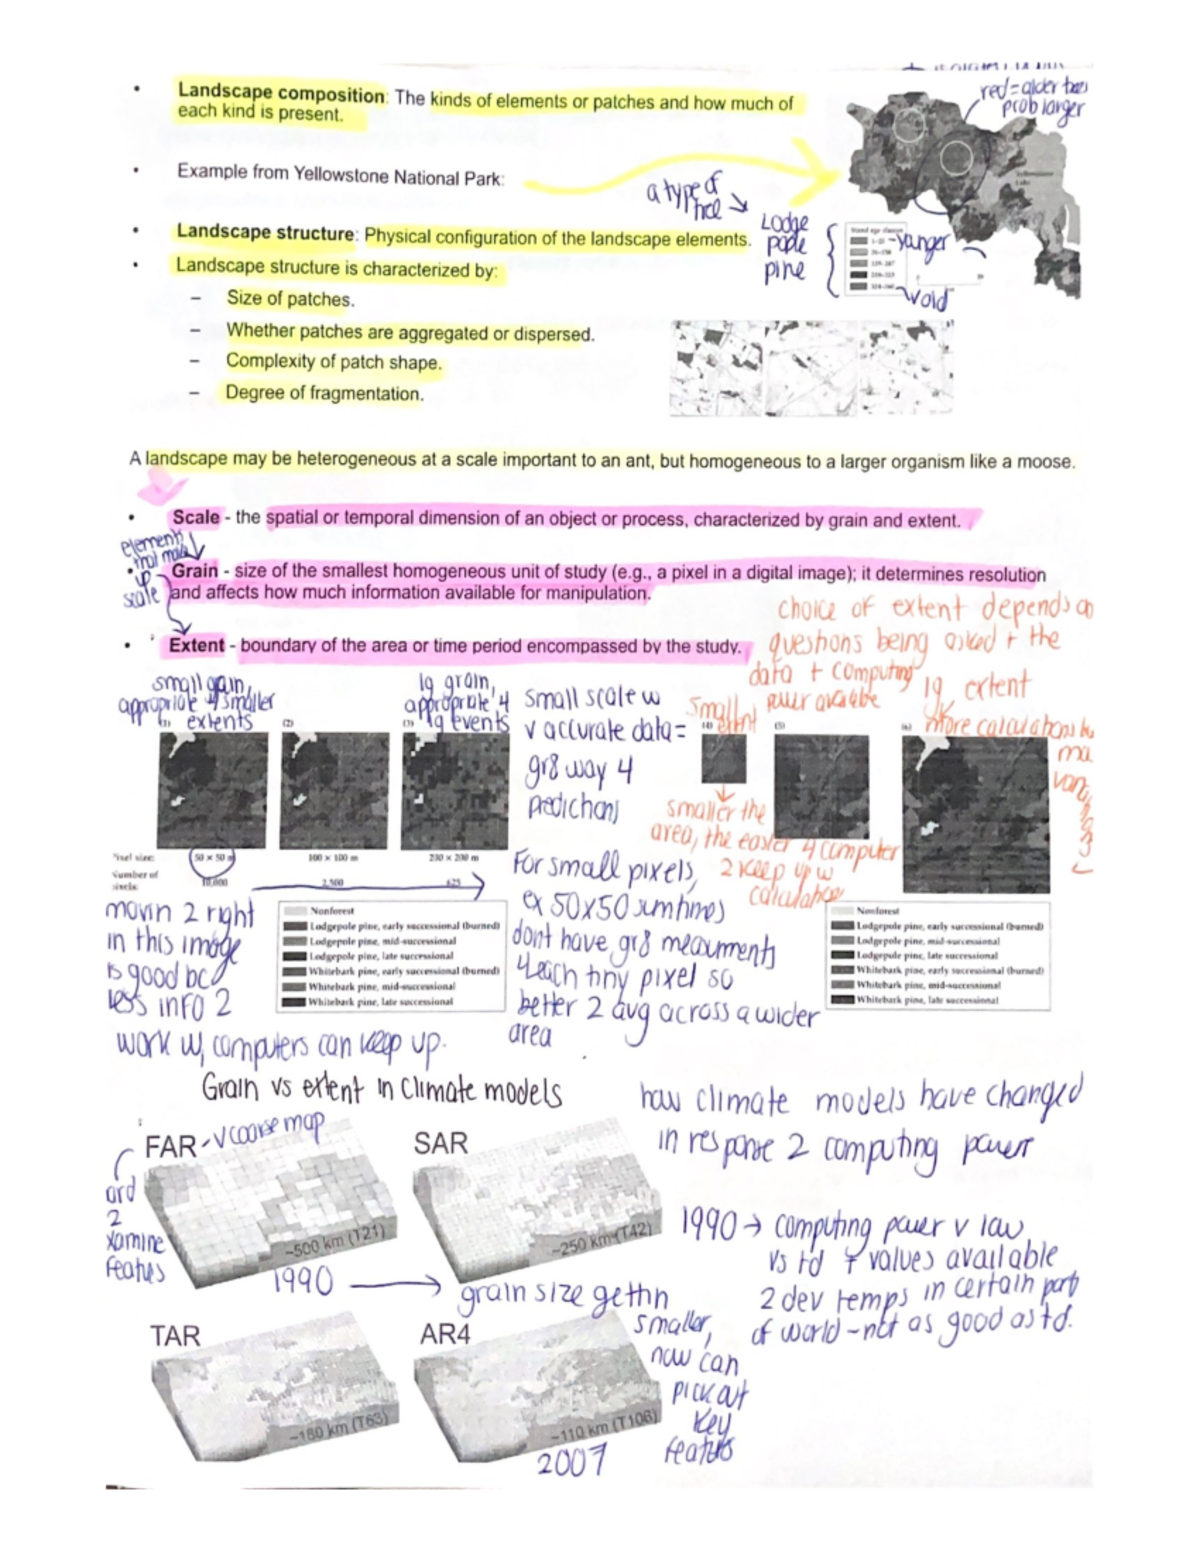 • Landscape composition: The kinds of elements or patches and how much of
each kind is present.
red=older trees
prob larger
• Example from Yellowstone National Park:
a type of
tree
Lodge
pole
pine
• Landscape structure: Physical configuration of the landscape elements.
Stand age classes
-younger
v old
• Landscape structure is characterized by:
– Size of patches.
– Whether patches are aggregated or dispersed.
– Complexity of patch shape.
– Degree of fragmentation.
A landscape may be heterogeneous at a scale important to an ant, but homogeneous to a larger organism like a moose.
• Scale - the spatial or temporal dimension of an object or process, characterized by grain and extent.
elements
that make
up
scale
• Grain - size of the smallest homogeneous unit of study (e.g., a pixel in a digital image); it determines resolution
and affects how much information available for manipulation.
• Extent - boundary of the area or time period encompassed by the study.
choice of extent depends on
questions being asked + the
data + computing
power available
small gain,
appropriate 4 smaller
extents
lg grain,
appropriate 4
lg events
small scale w
v accurate data =
gr8 way 4
predictions
small
extent
lg extent
more calculations
(1)
(2)
(3)
(4)
(5)
(6)
smaller the
area, the easier 4 computer
2 keep up w
calculations
Pixel size:
50 × 50 m
100 × 100 m
200 × 200 m
Number of
pixels:
10,000
2,500
625
For small pixels,
ex 50x50 sumtimes
dont have gr8 mearuments
4 each tiny pixel so
better 2 avg across a wider
area
movin 2 right
in this image
is good bc
less info 2
work w, computers can keep up.
Nonforest
Lodgepole pine, early successional (burned)
Lodgepole pine, mid-successional
Lodgepole pine, late successional
Whitebark pine, early successional (burned)
Whitebark pine, mid-successional
Whitebark pine, late successional
Nonforest
Lodgepole pine, early successional (burned)
Lodgepole pine, mid-successional
Lodgepole pine, late successional
Whitebark pine, early successional (burned)
Whitebark pine, mid-successional
Whitebark pine, late successional
Grain vs extent in climate models
how climate models have changed
in response 2 computing power
FAR - v coarse map
SAR
2
xamine
~500 km (T21)
~250 km (T42)
1990
grain size gettin
smaller,
now can
pick out
key
features
1990 → computing power v low
vs td + values available
2 dev temps in certain part
of world - not as good as td.
TAR
AR4
~180 km (T63)
~110 km (T106)
2007